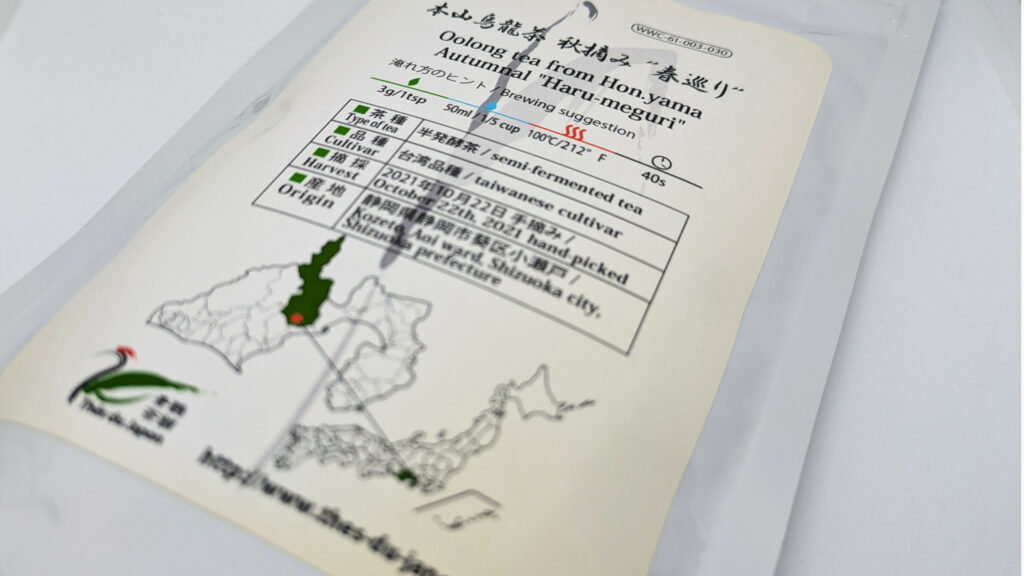 WWC-61-003-030
本山烏龍茶 秋摘み "春巡り"
Oolong tea from Hon.yama
Autumnal "Haru-meguri"
淹れ方のヒント / Brewing suggestion
3g/1tsp 50ml / 1/5 cup 100℃/212° F 40s
茶種 半発酵茶 / semi-fermented tea
Type of tea
品種 台湾品種 / taiwanese cultivar
Cultivar
摘採 2021年10月22日 手摘み /
Harvest October 22th, 2021 hand-picked
産地 静岡県静岡市葵区小瀬戸 /
Origin Kozeto, Aoi ward, Shizuoka city,
Shizuoka prefecture
Thés du Japan
http://www.thes-du-japan